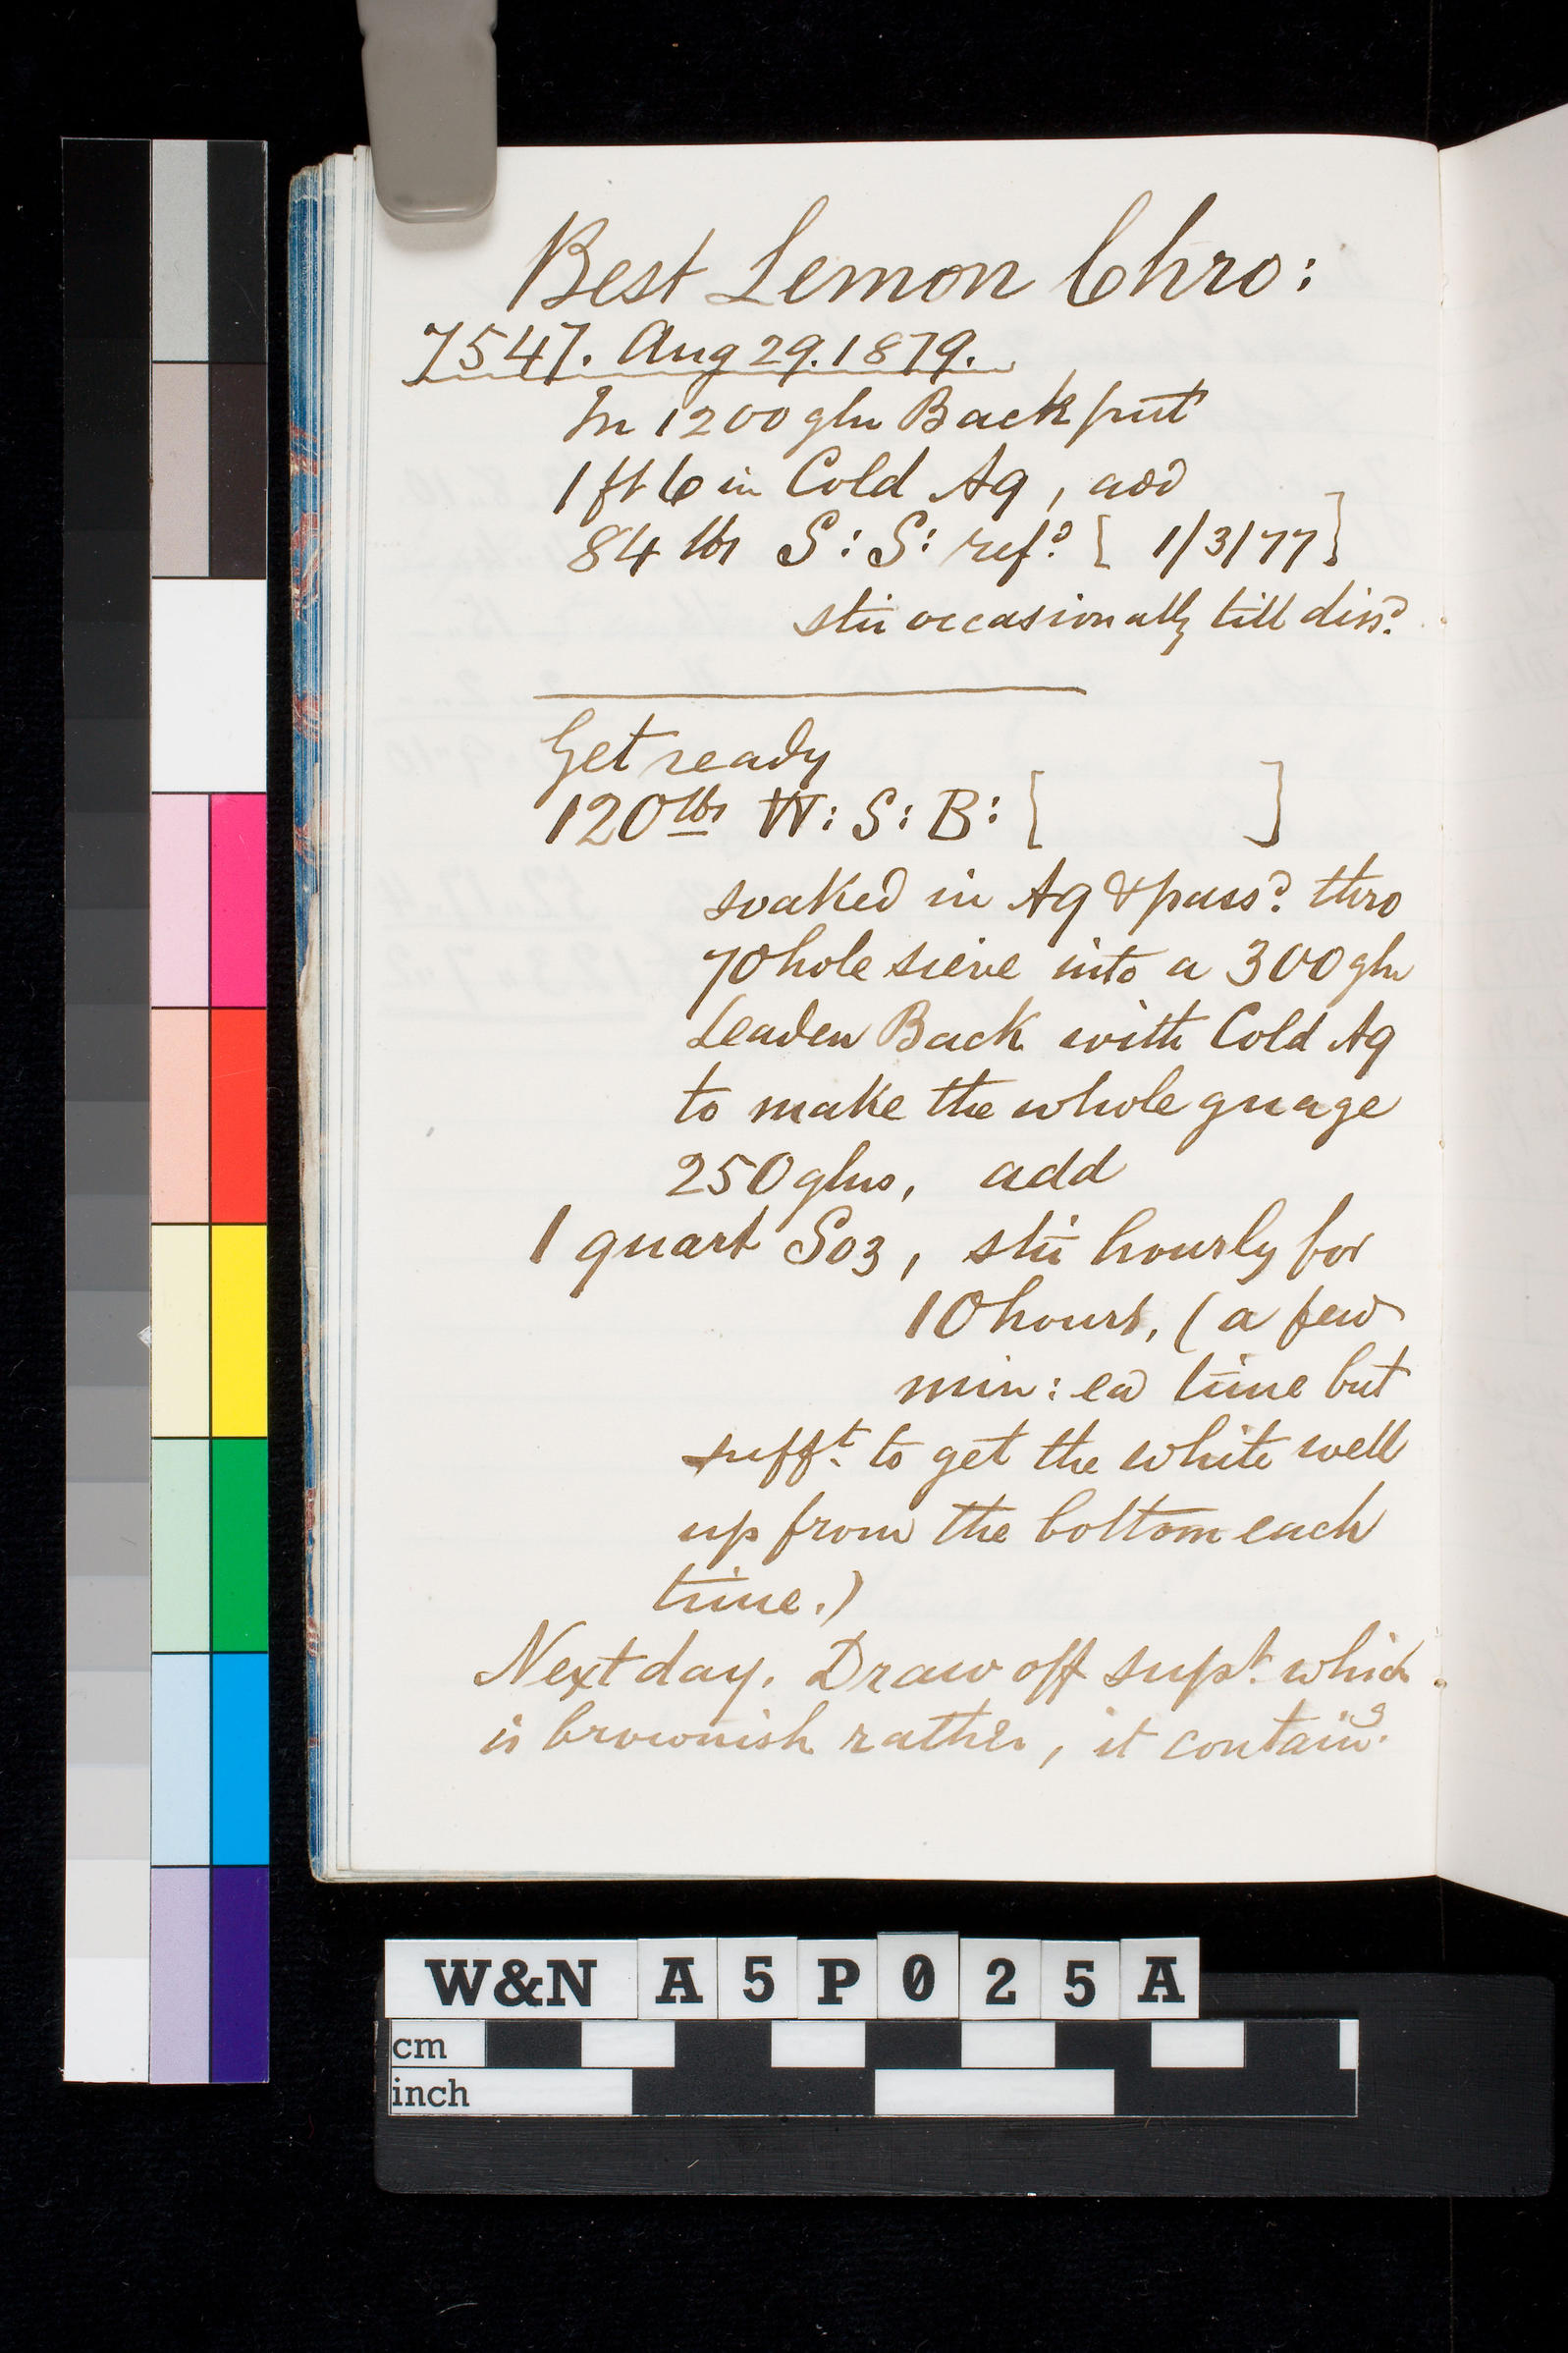 Best Lemon Chro:
7547. Aug 29. 1879.
In 1200 gln Back put
1 ft 6 in Cold Aq, add
84 lbs S: S: refd. [ 1/3/77 ]
stir occasionally till dissd.
Get ready
120 lbs W: S: B: [ ]
soaked in Aq & passd. thro
70 hole sieve into a 300 gln
Leaden Back with Cold Aq
to make the whole guage
250 glns, add
1 quart So3, stir hourly for
10 hours, (a few
min: ea time but
sufft. to get the white well
up from the bottom each
time.)
Next day. Draw off supt. which
is brownish rather, it contains
W&N A5P025A
cm
inch